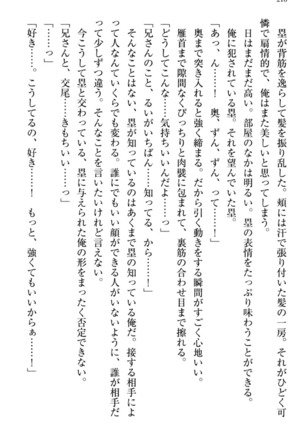 塁が背筋を逸らして髪を振り乱した。頬には汗で張り付いた髪の一房。それがひどく可
憐で扇情的で、俺はまた美しいと思ってしまう。
日はまだまだ高い。部屋のなかは明るい。塁の表情をたっぷり味わうことができる。
俺に犯されている塁。それを望んでいた塁。
「あ……っ！　奥、ずん、ずん、って……！」
奥まで突き入れると強く締まる。だから引く動きをする瞬間がすごく心地いい。
雁首まで隙間なくぴっちりと肉襞に包まれて、裏筋の合わせ目まで擦れる。
「どうしてこんな……気持ちいいんだよ……っ」
「兄さんのこと、るいがいちばん……知ってる、から……！」
そんなことはない、塁が知っているのはあくまで塁の知っている俺だ。接する相手によ
って人なんていくらでも変わる。誰にでもいい顔ができる人がいないように、誰が相手だ
って少しずつ違う。そんなことを言いたいけれど言えない。
今こうして塁と交わっている、塁に与えられた俺の形をまったく否定できない。
「兄さんと、交尾……きもちいい……っ」
「……っ」
「好き……。こうしてるの、好き……！　もっと、強くてもいいからぁ……！」